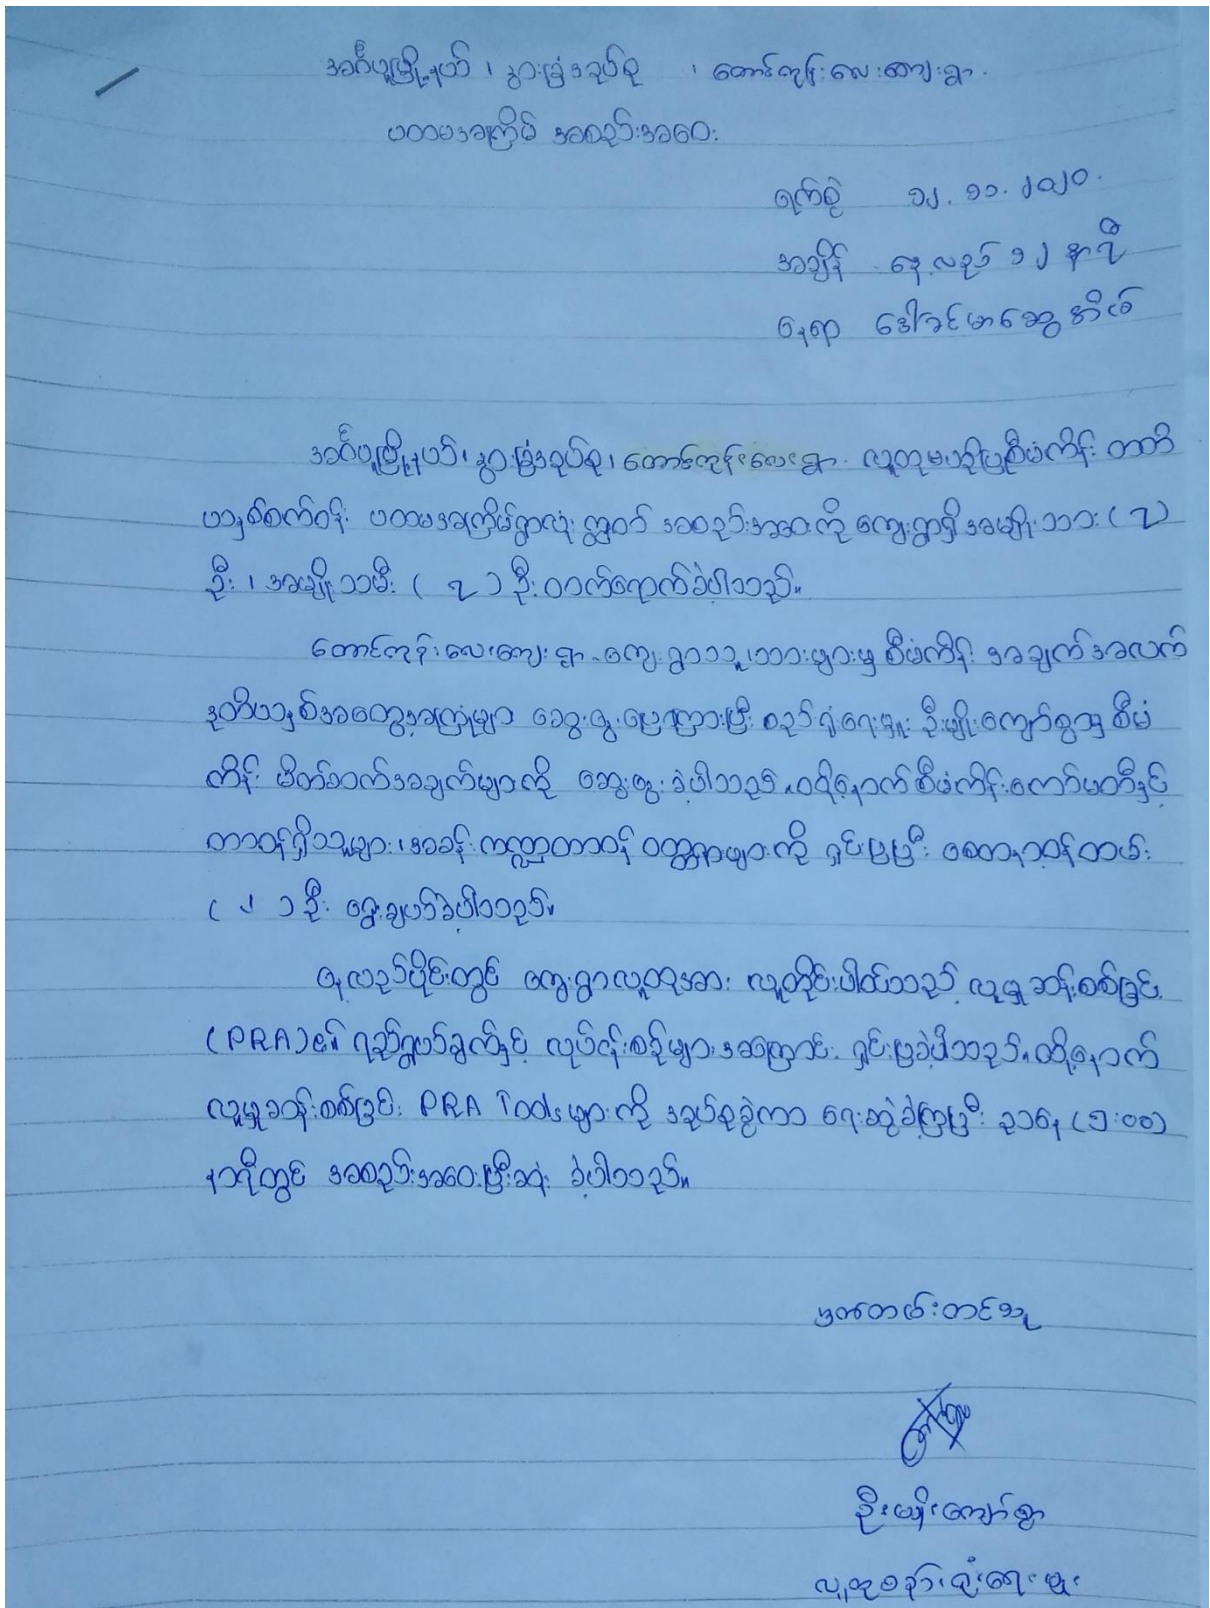 အင်္ဂပူမြို့နယ် ၊ နွားခြံအုပ်စု ၊ တောင်ကုန်းလေးကျေးရွာ
ပထမအကြိမ် အစည်းအဝေး
ရက်စွဲ ၁၂.၁၁.၂၀၂၀.
အချိန် နေ့လည် ၁၂ နာရီ
နေရာ ဒေါ်ခင်မာဆွေအိမ်
အင်္ဂပူမြို့နယ်၊ နွားခြံအုပ်စု၊ တောင်ကုန်းလေးရွာ လူထုဗဟိုပြုစီမံကိန်း တတိ
ယနှစ်စက်ဝန်း ပထမအကြိမ်ရွာလုံးကျွတ် အစည်းအဝေးကို ကျေးရွာရှိအမျိုးသား (၇)
ဦး ၊ အမျိုးသမီး ( ၃ ) ဦး တက်ရောက်ခဲ့ပါသည်။
တောင်ကုန်းလေးကျေးရွာ ကျေးရွာသူ၊သားများမှ စီမံကိန်း အချက်အလက်
ဒုတိယနှစ်အတွေ့အကြုံများ ဆွေးနွေးပြောကြားပြီး စည်းရုံးရေးမှူး ဦးမျိုးကျော်စွာမှ စီမံ
ကိန်း မိတ်ဆက်အချက်များကို ဆွေးနွေးခဲ့ပါသည်။ ထို့နောက် စီမံကိန်းကော်မတီနှင့်
တာဝန်ရှိသူများ၊ အခန်းကဏ္ဍတာဝန် ဝတ္တရားများကို ရှင်းပြပြီး စေတနာ့ဝန်ထမ်း
( ၂ ) ဦး ရွေးချယ်ခဲ့ပါသည်။
နေ့လည်ပိုင်းတွင် ကျေးရွာလူထုအား လူတိုင်းပါဝင်သည့် လူမှုဆန်းစစ်ခြင်း
(PRA)၏ ရည်ရွယ်ချက်နှင့် လုပ်ငန်းစဉ်များအကြောင်း ရှင်းပြခဲ့ပါသည်။ ထို့နောက်
လူမှုဆန်းစစ်ခြင်း PRA Tools များကို အုပ်စုခွဲကာ ရေးဆွဲခဲ့ကြပြီး ညနေ (၅:၀၀)
နာရီတွင် အစည်းအဝေးပြီးဆုံး ခဲ့ပါသည်။
မှတ်တမ်းတင်သူ
ဦးမျိုးကျော်စွာ
လူထုစည်းရုံးရေးမှူး